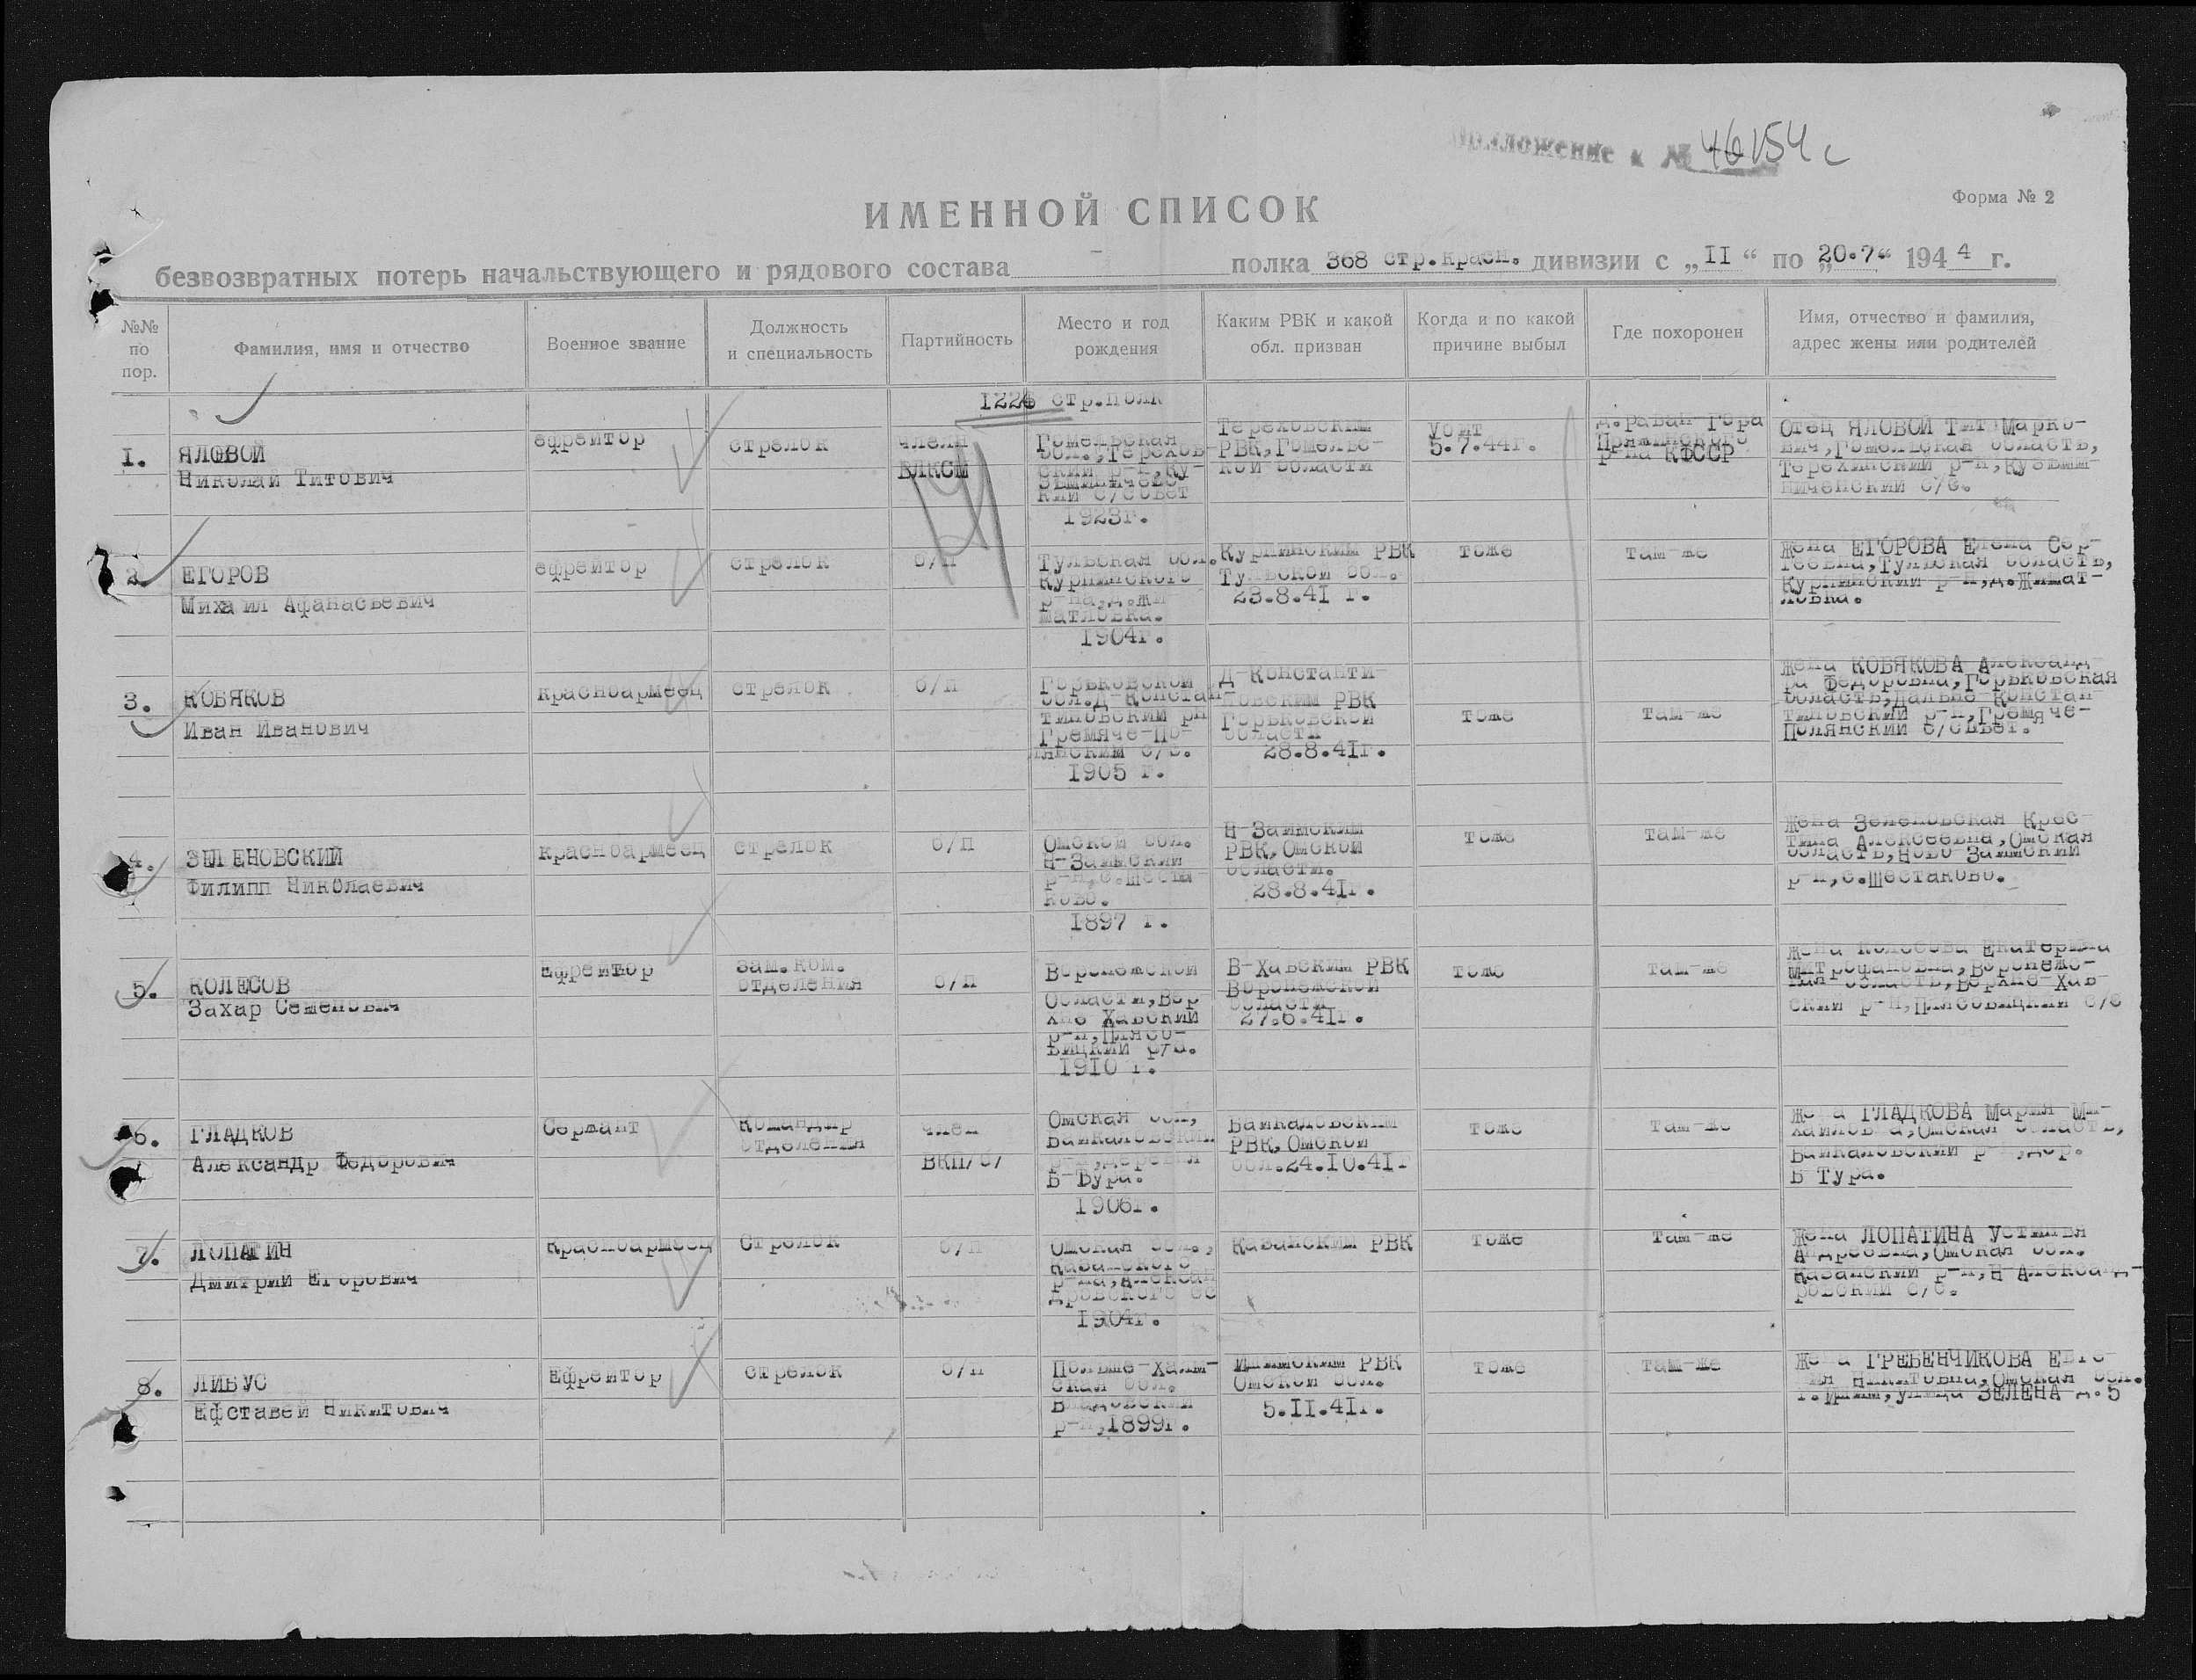 Приложение к № 46154с
Форма № 2
ИМЕННОЙ СПИСОК
безвозвратных потерь начальствующего и рядового состава - полка 368 стр.красн. дивизии с „II“ по „20.7“ 1944 г.
№№ по пор.
Фамилия, имя и отчество
Военное звание
Должность и специальность
Партийность
Место и год рождения
Каким РВК и какой обл. призван
Когда и по какой причине выбыл
Где похоронен
Имя, отчество и фамилия, адрес жены или родителей
1226 стр.полк
I.
ЯЛОВОЙ
Николай Титович
ефрейтор
стрелок
члена
ВЛКСМ
Гомельская
обл.,Терехов-
ский р-н,Ку-
кий с/совет
1923г.
Тереховским
РВК,Гомельс-
кой области
Убит
5.7.44г.
д.Раван Гора
р-на КФССР
Отец ЯЛОВОЙ Тит Марко-
вич,Гомельская область,
Терехинский р-н,Кузьми-
ниченский с/с.
2.
ЕГОРОВ
Михаил Афанасьевич
ефрейтор
стрелок
б/п
Тульская обл.
Куркинского
р-на,д.Жи
матловка.
1904г.
Куркинским РВК
Тульской обл.
23.8.41 г.
тоже
там-же
Жена ЕГОРОВА Елена Сер-
геевна,Тульская область,
Куркинский р-н,д.Жимат-
ловка.
3.
КОБЯКОВ
Иван Иванович
красноармеец
стрелок
б/п
Горьковской
обл.Д-Констан-
тиновским рн
Гремяче-По-
лянским с/с.
1905 г.
Д-Константи-
новским РВК
Горьковской
области
28.8.41г.
тоже
там-же
Жена КОБЯКОВА Александ-
ра Федоровна,Горьковская
область,Дальне-Констан-
тиновский р-н,Гремяче-
Полянский с/совет.
4.
ЗЕЛЕНОВСКИЙ
Филипп Николаевич
красноармеец
стрелок
б/п
Омской обл.
Н-Заимский
р-н,с.Шеста-
ково.
1897 г.
Н-Заимским
РВК,Омской
области.
28.8.41г.
тоже
там-же
Жена Зеленовская Крис-
тина Алексеевна,Омская
область,Ново Заимский
р-н,с.Шестаково.
5.
КОЛЕСОВ
Захар Семенович
Ефрейтор
Зам.ком.
отделения
б/п
Воронежской
Области,Вер
хне Хавский
р-н,Плясо-
вицкий с/с.
1910 г.
В-Хавским РВК
Воронежской
области
27.6.41г.
тоже
там-же
Жена Колесова Екатерина
Митрофановна,Воронежс-
кая область,Верхне-Хав-
ский р-н,Плясовицкий с/с
6.
ГЛАДКОВ
Александр Федорович
Сержант
Командир
отделения
член
ВКП/б/
Омская обл,
Байкаловский
р-н,деревня
Б-Бура.
1906г.
Байкаловским
РВК,Омской
обл.24.10.41г
тоже
там-же
Жена ГЛАДКОВА Мария Ми-
хайловна,Омская область,
Байкаловский р-н,дер.
Б Тура.
7.
ЛОПАТИН
Дмитрий Егорович
Красноармеец
Стрелок
б/п
Омская обл.,
Казанского
р-на,Алексан
дровского сс
1904г.
Казанским РВК
тоже
там-же
Жена ЛОПАТИНА Устинья
Андреевна,Омская обл.
Казанский р-н,Н-Александ-
ровский с/с.
8.
ЛИБУС
Ефставей Никитович
Ефрейтор
стрелок
б/п
Польше-Халм-
ская обл.
Владовский
р-н,1899г.
Ишимским РВК
Омской обл.
5.II.41г.
тоже
там-же
Жена ГРЕБЕНЧИКОВА Евге-
ния Никитовна,Омская обл.
г.Ишим,улица ЗЕЛЕНА д.5